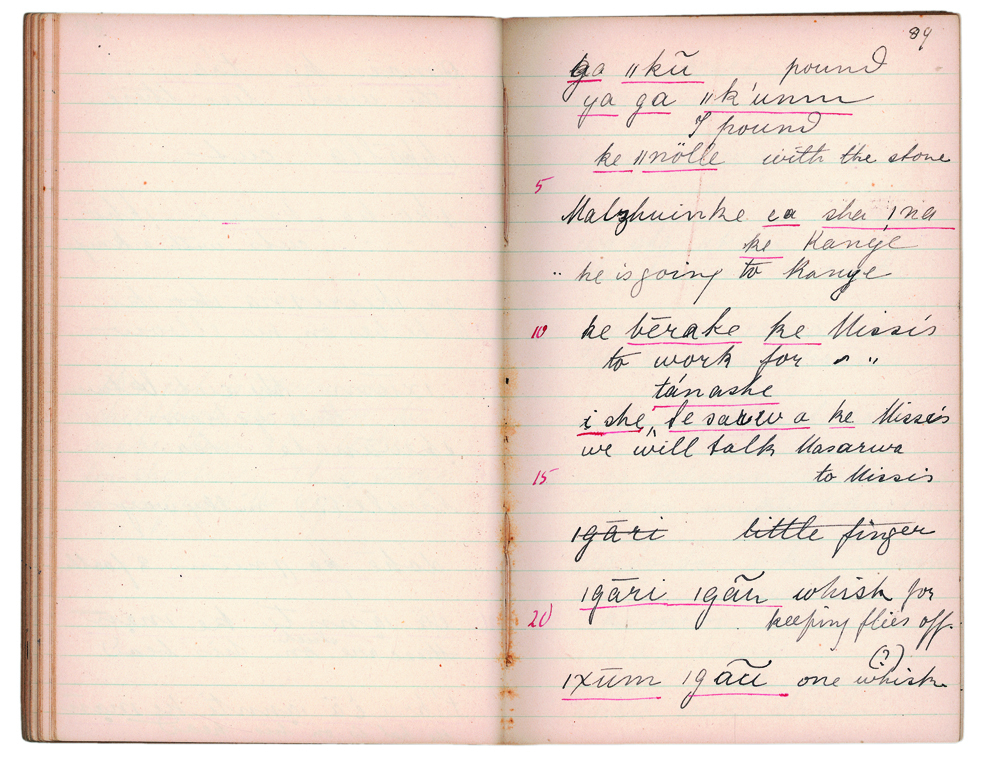 89
ga ǁkũ pound
ya ga ǁk'unm
I pound
ke ǁnölle with the stone
5
Malzhuinke ea sha ǀna
ke Kanye
" he is going to Kanye
10 ke bērake ke Missis
to work for " "
tánashe
i she, se sarwa ke Missis
we will talk Masarwa
15 to Missis
ǀgāri little finger
ǀgāri ǀgãu whisk for
20 keeping flies off.
(?)
ǀxūm ǀgãũ one whisk